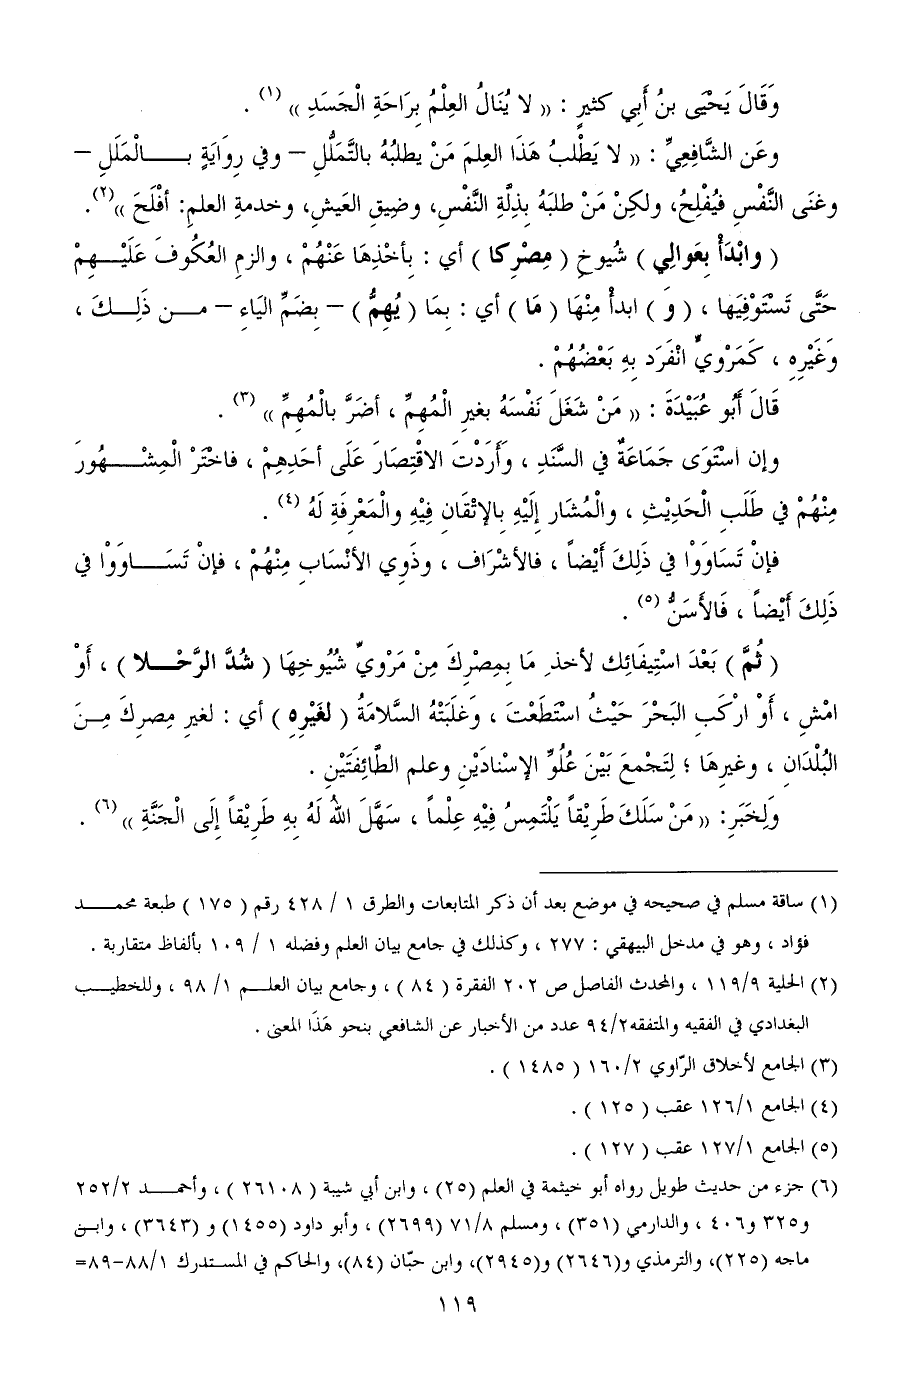 وَقَالَ يَحْيَى بنُ أَبي كثيرٍ : (( لا يُنَالُ العِلْمُ بِرَاحَةِ الْجَسَدِ )) (١) .
وعَن الشَّافِعِيِّ : (( لا يَطْلبُ هَذَا العِلمَ مَنْ يطلبُهُ بالتَّمَلُّلِ – وفي روايَةٍ بـالْملَلِ –
وغنَى النَّفْسِ فيُفْلِحُ، ولكِنْ مَنْ طلبَهُ بِذلَّةِ النَّفْسِ، وضِيقِ العَيْشِ، وخدمةِ العلمِ: أفْلَحَ ))(٢).
( وابْدَأْ بِعَوالِي ) شُيوخِ ( مِصْرِكا ) أي : بأخْذِهَا عَنْهُمْ ، والزمِ العُكُوفَ عَلَيْـهِمْ
حَتَّى تَسْتَوْفِيَها ، ( وَ ) ابدأْ مِنْهَا ( مَا ) أي : بِمَا ( يُهِمُّ ) – بضَمِّ اليَاءِ – مـن ذَلِـكَ ،
وَغَيْرِهِ ، كَمَرْويٍّ انْفَرَد بِهِ بَعْضُهُمْ .
قَالَ أَبُو عُبَيْدَةَ : (( مَنْ شَغَلَ نَفْسَهُ بغيرِ الْمُهِمِّ ، أضَرَّ بالْمُهِمِّ )) (٣) .
وإن اسْتَوَى جَمَاعَةٌ في السَّنَدِ ، وأَرَدْتَ الاقْتِصَارَ عَلَى أحَدِهِمْ ، فاخْتَرْ الْمِشْـهُورَ
مِنْهُمْ في طَلَبِ الْحَدِيْثِ ، والْمُشَار إليْهِ بالإتْقَانِ فِيْهِ والْمَعْرِفَةِ لَهُ (٤) .
فإنْ تَسَاوَوْا في ذَلِكَ أَيْضاً ، فالأشْرَاف ، وذَوي الأنْسَابِ مِنْهُمْ ، فإنْ تَسَـاوَوْا في
ذَلِكَ أَيْضاً ، فَالأَسَنُّ (٥) .
( ثُمَّ ) بَعْدَ اسْتِيفَائِك لأخذِ مَا بِمِصْرِكَ مِنْ مَرْويِّ شُيُوخِهَا ( شُدَّ الرَّحْـلا ) ، أَوْ
امْشِ ، أَوْ ارْكَبِ البَحْرَ حَيْثُ اسْتَطَعْتَ ، وَغَلَبَتْهُ السَّلامَةُ ( لغَيْرِهِ ) أي : لغيرِ مِصرِكَ مِـنَ
البُلْدَانِ ، وغيرِهَا ؛ لِتَجْمعَ بَيْنَ عُلُوِّ الإسْنادَيْنِ وعلمِ الطَّائِفَتَيْنِ .
ولِخَبَرِ: (( مَنْ سَلَكَ طَرِيْقاً يَلْتَمِسُ فِيْهِ عِلْماً ، سَهَّلَ اللهُ لَهُ بِهِ طَرِيْقاً إلَى الْجَنَّةِ )) (٦) .
(١) ساقة مسلم في صحيحه في موضع بعد أن ذكر المتابعات والطرق ١ / ٤٢٨ رقم ( ١٧٥ ) طبعة محمـد
فؤاد ، وهو في مدخل البيهقي : ٢٧٧ ، وكذلك في جامع بيان العلم وفضله ١ / ١٠٩ بألفاظ متقاربة .
(٢) الحلية ١١٩/٩ ، والمحدث الفاصل ص ٢٠٢ الفقرة ( ٨٤ ) ، وجامع بيان العلـم ١/ ٩٨ ، وللخطيـب
البغدادي في الفقيه والمتفقه٩٤/٢ عدد من الأخبار عن الشافعي بنحو هَذَا المعنى .
(٣) الجامع لأخلاق الرّاوي ١٦٠/٢ ( ١٤٨٥ ) .
(٤) الجامع ١٢٦/١ عقب ( ١٢٥ ) .
(٥) الجامع ١٢٧/١ عقب ( ١٢٧ ) .
(٦) جزء من حديث طويل رواه أبو خيثمة في العلم (٢٥) ، وابن أبي شيبة ( ٢٦١٠٨ ) ، وأحمـد ٢٥٢/٢
و٣٢٥ و٤٠٦ ، والدارمي (٣٥١) ، ومسلم ٧١/٨ (٢٦٩٩) ، وأبو داود (١٤٥٥) و (٣٦٤٣) ، وابـن
ماجه (٢٢٥)، والترمذي و(٢٦٤٦) و(٢٩٤٥)، وابن حبّان (٨٤)، والحاكم في المستدرك ٨٨/١–٨٩=
١١٩